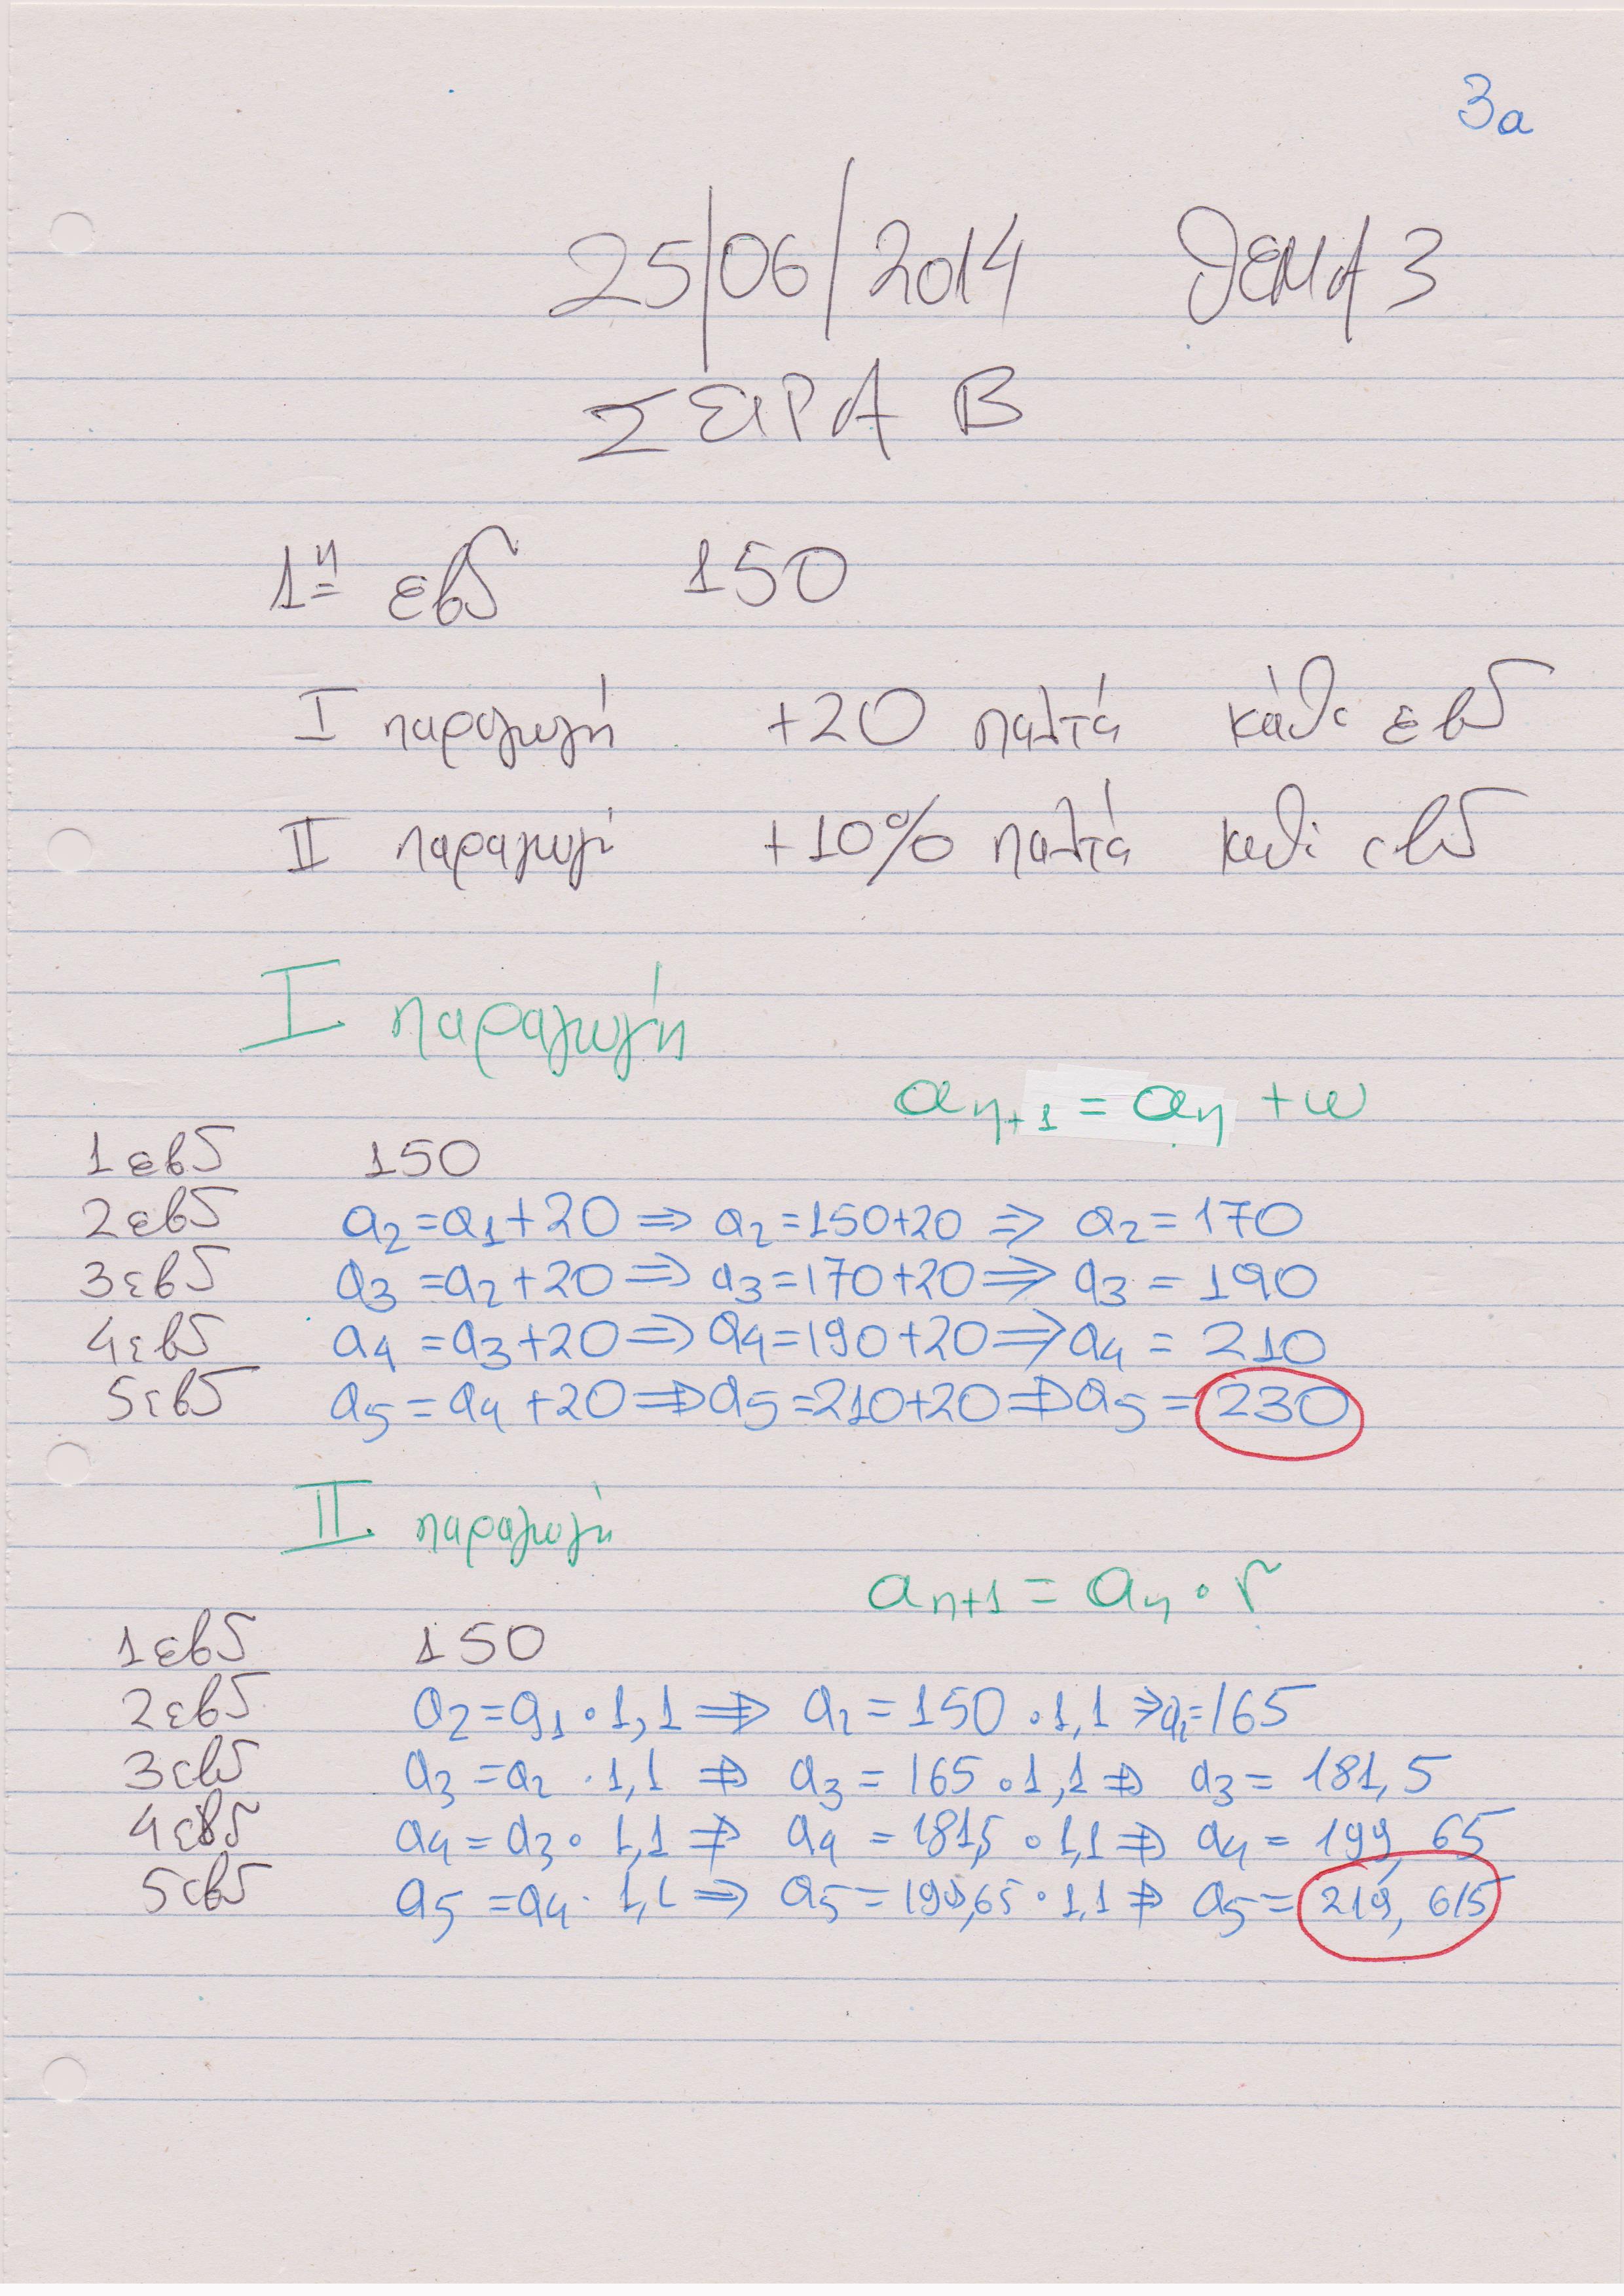 3α
25/06/2014 ΘΕΜΑ 3
ΣΕΙΡΑ Β
1η εβδ 150
I παραγωγή +20 παλτά κάθε εβδ
II παραγωγή +10% παλτά καθε εβδ
I παραγωγή
αη+1 = αη + ω
1 εβδ 150
2 εβδ α2 = α1 + 20 ⇒ α2 = 150+20 ⇒ α2 = 170
3 εβδ α3 = α2 + 20 ⇒ α3 = 170+20 ⇒ α3 = 190
4 εβδ α4 = α3 + 20 ⇒ α4 = 190+20 ⇒ α4 = 210
5 εβδ α5 = α4 + 20 ⇒ α5 = 210+20 ⇒ α5 = 230
II παραγωγή
αη+1 = αη · r
1 εβδ 150
2 εβδ α2 = α1 · 1,1 ⇒ α2 = 150 · 1,1 ⇒ α2 = 165
3 εβδ α3 = α2 · 1,1 ⇒ α3 = 165 · 1,1 ⇒ α3 = 181,5
4 εβδ α4 = α3 · 1,1 ⇒ α4 = 181,5 · 1,1 ⇒ α4 = 199,65
5 εβδ α5 = α4 · 1,1 ⇒ α5 = 199,65 · 1,1 ⇒ α5 = 219,615